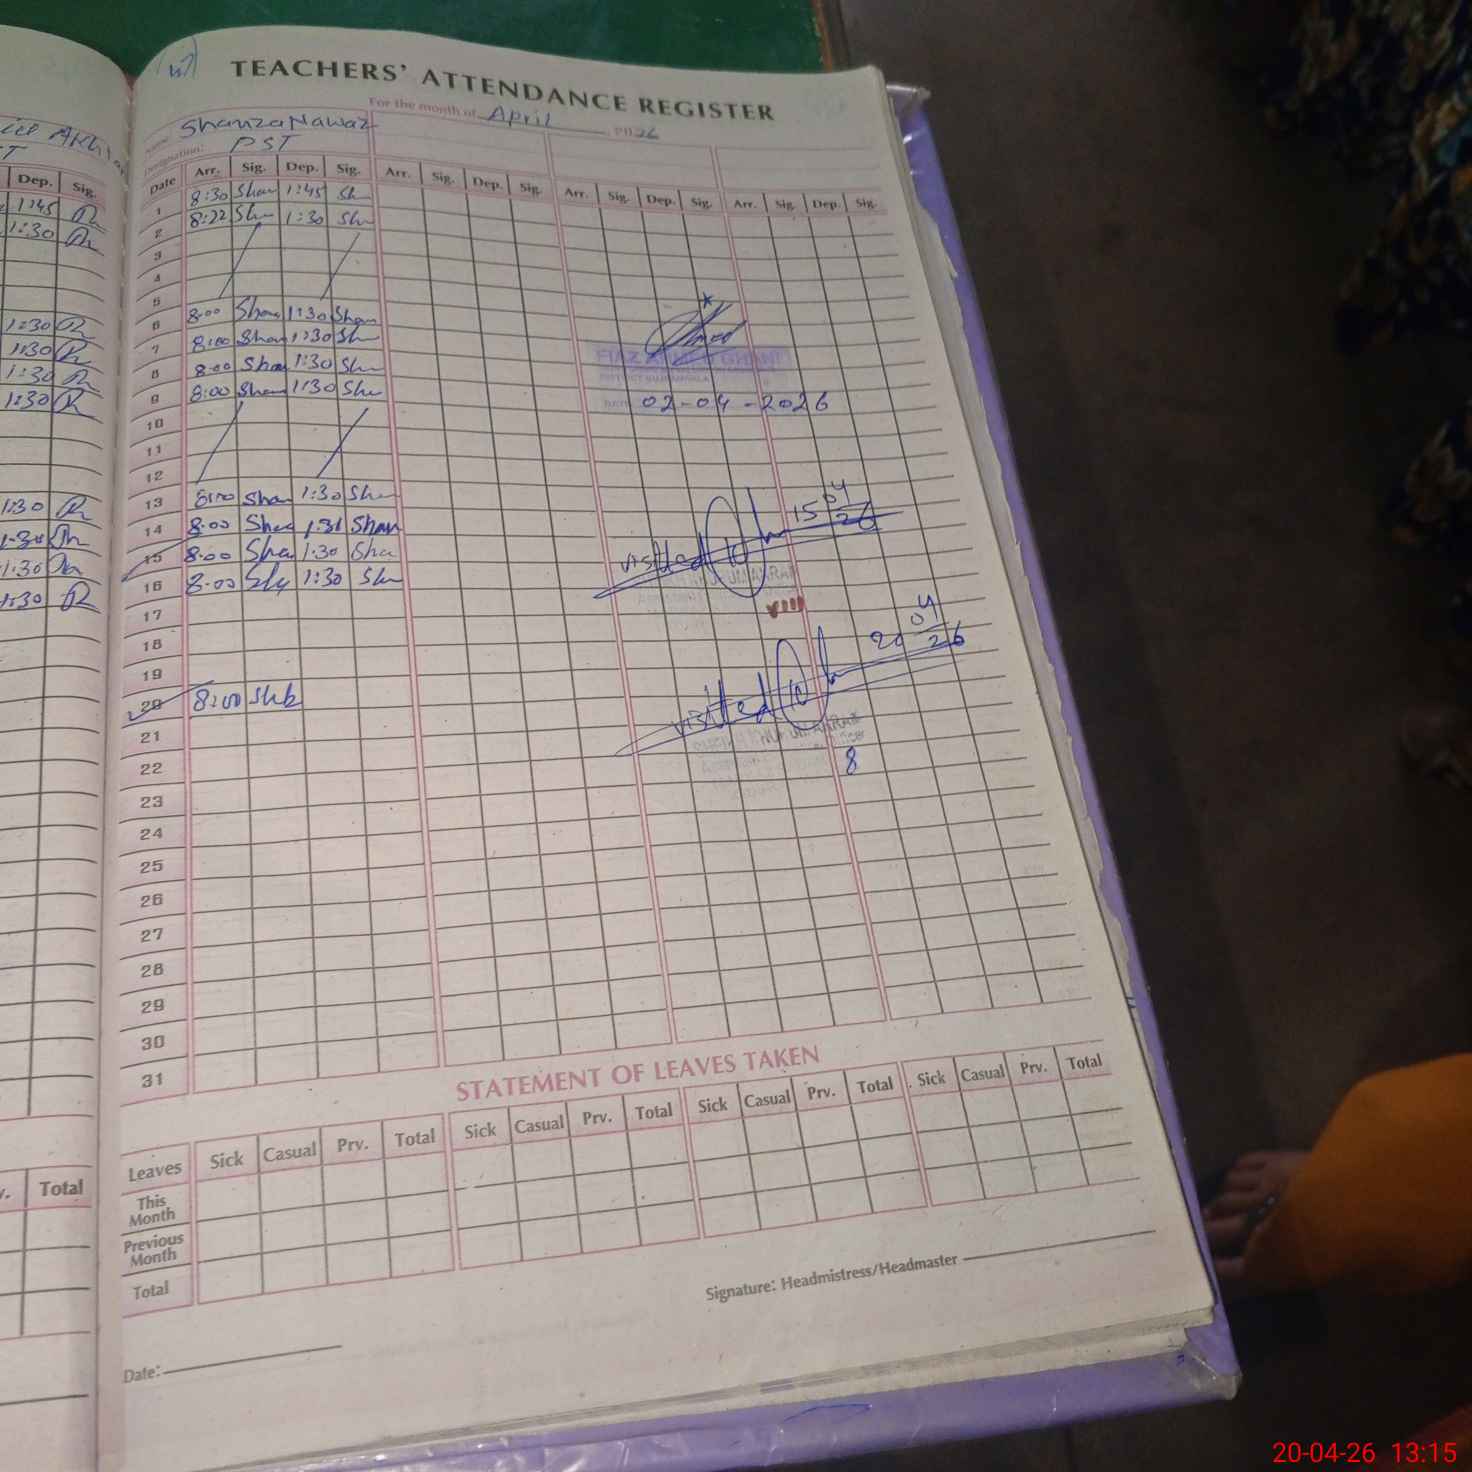 TEACHERS' ATTENDANCE REGISTER
For the month of April 2026
Name: Shanza Nawaz
Designation: PST
Dep. Sig.
1:45
1:30
1:30
1:30
1:30
1:30
1:30
1:30
1:30
1:30
Date Arr. Sig. Dep. Sig. Arr. Sig. Dep. Sig. Arr. Sig. Dep. Sig. Arr. Sig. Dep. Sig.
1 8:30 Shan 1:45 Sh
2 8:22 Sh 1:30 Sh
3
4
5
6 8:00 Shan 1:30 Shan
7 8:00 Shan 1:30 Sh
8 8:00 Shan 1:30 Sh
9 8:00 Shan 1:30 Sh
02-04-2026
10
11
12
13 8:00 Shan 1:30 Shan
14 8:00 Shan 1:31 Shan
15 8:00 Sha 1:30 Sha
visited 15 04 26
16 8:00 1:30 Sh
17
18
19
20 8:00
visited 20 04 26
21
22
8
23
24
25
26
27
28
29
30
31
STATEMENT OF LEAVES TAKEN
Total
Leaves Sick Casual Prv. Total Sick Casual Prv. Total Sick Casual Prv. Total Sick Casual Prv. Total
This Month
Previous Month
Total
Signature: Headmistress/Headmaster
Date:
20-04-26 13:15